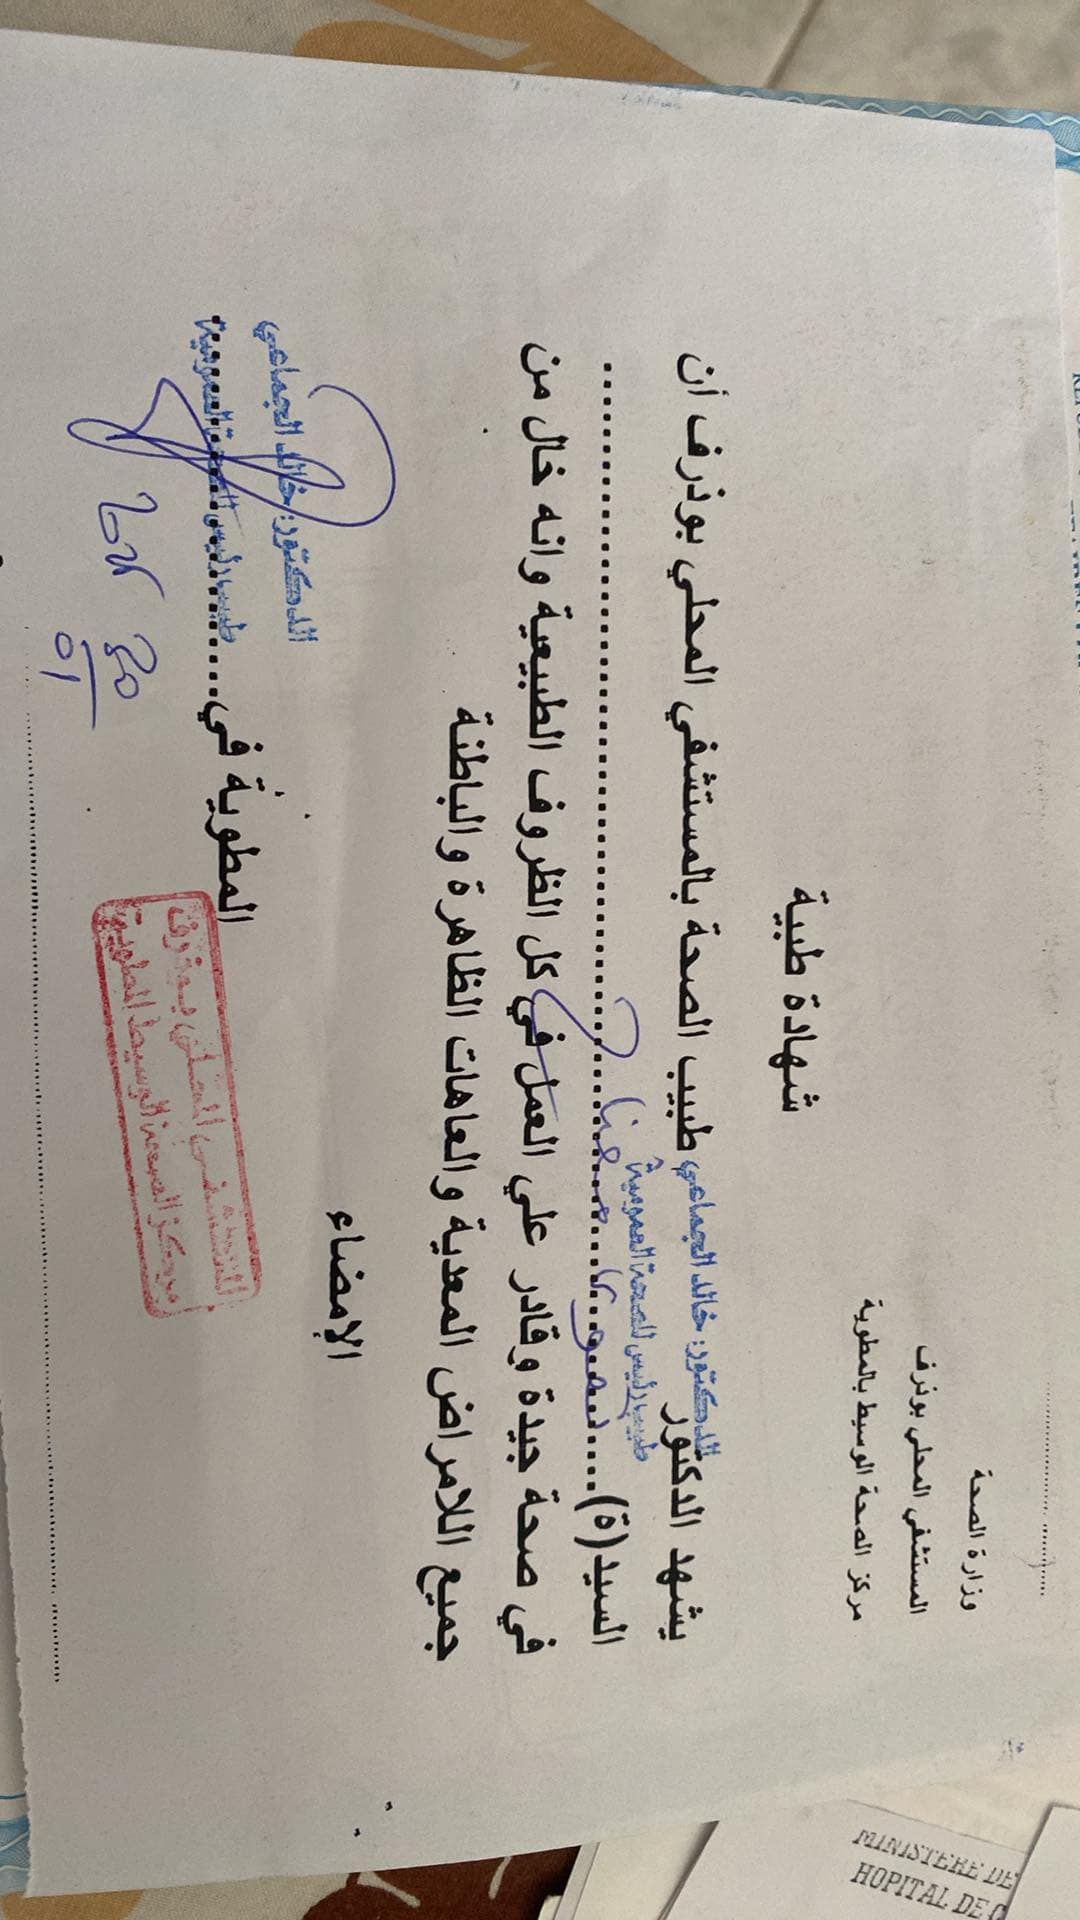 وزارة الصحة
المستشفى المحلي بوذرف
مركز الصحة الوسيط بالمطوية
شهادة طبية
يشهد الدكتور الدكتور: خالد الجماعي طبيب الصحة بالمستشفي المحلي بوذرف أن
طبيب رئيس للصحة العمومية
السيد(ة)
في صحة جيدة وقادر علي العمل في كل الظروف الطبيعية وانه خال من
جميع اللامراض المعدية والعاهات الظاهرة والباطنة
الإمضاء
الدكتور: خالد الجماعي
المطوية في
طبيب رئيس للصحة العمومية
المستشفى المحلي بوذرف
مركز الصحة الوسيط المطوية
MINISTERE DE
HOPITAL DE